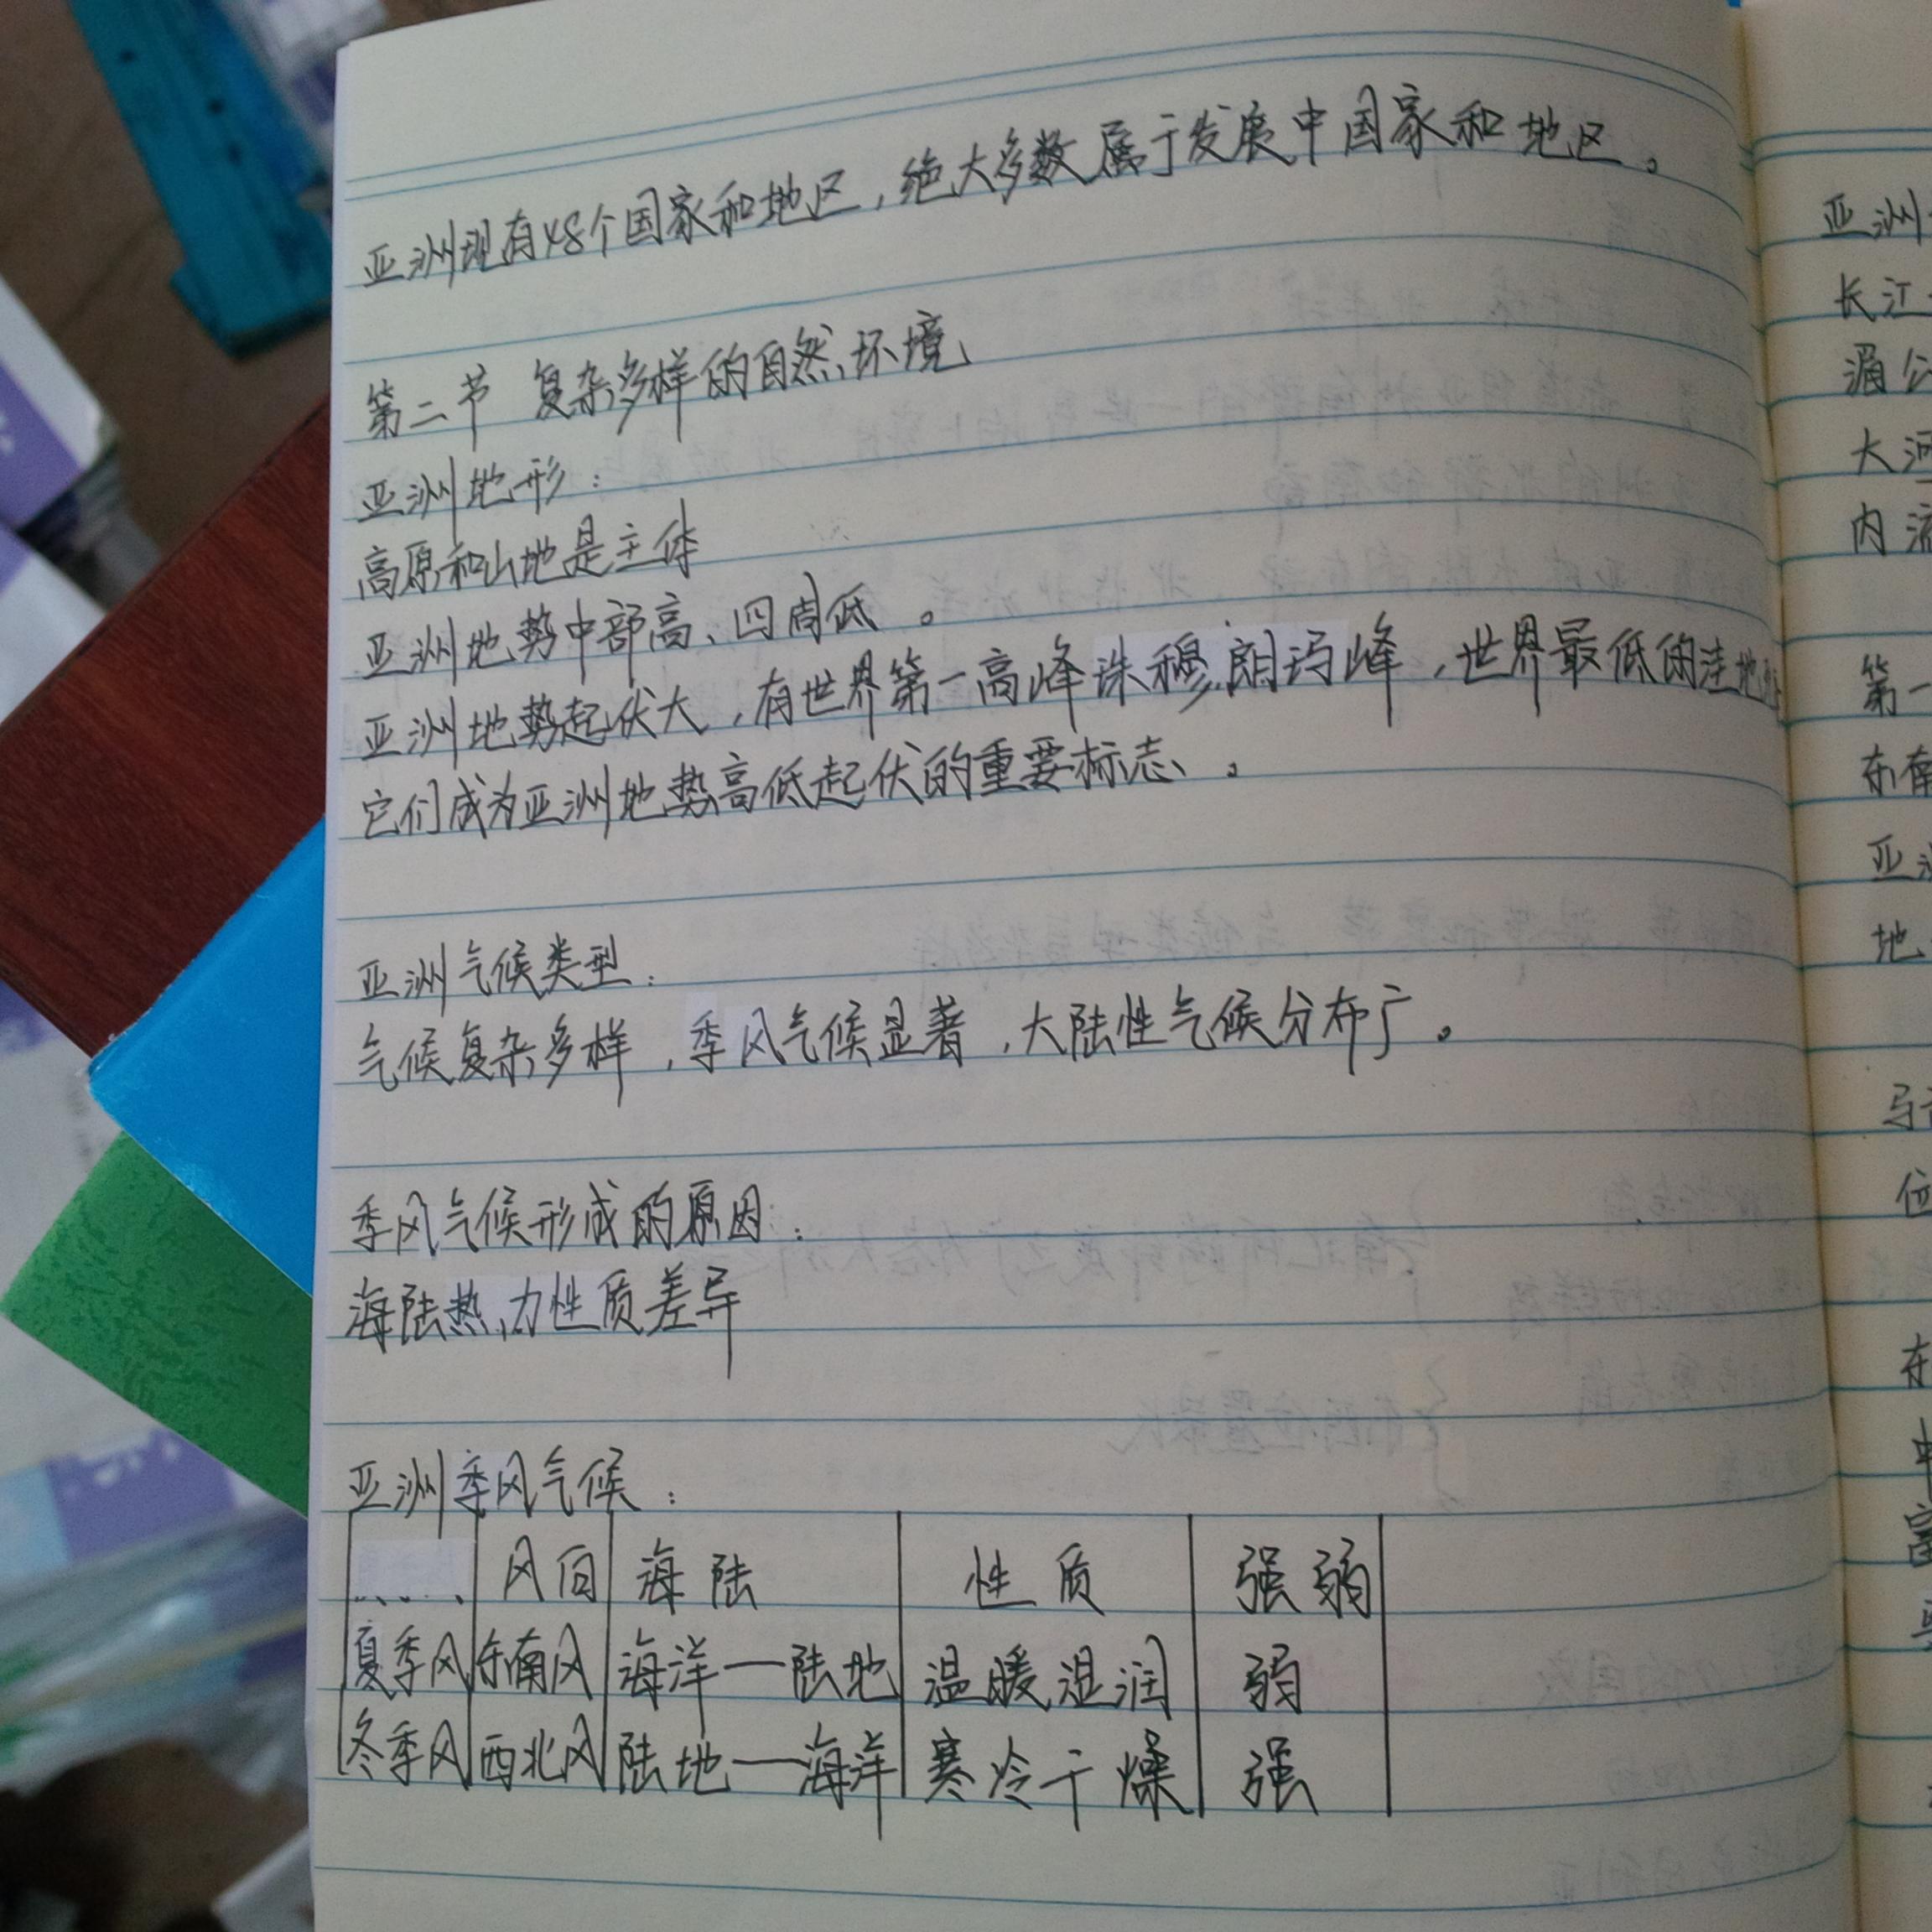 亚洲现有48个国家和地区,绝大多数属于发展中国家和地区。
第二节 复杂多样的自然环境
亚洲地形:
高原和山地是主体
亚洲地势中部高、四周低。
亚洲地势起伏大,有世界第一高峰珠穆朗玛峰,世界最低的洼地
它们成为亚洲地势高低起伏的重要标志。
亚洲气候类型:
气候复杂多样,季风气候显著,大陆性气候分布广。
季风气候形成的原因:
海陆热力性质差异
亚洲季风气候:
风向 海陆 性质 强弱
夏季风 东南风 海洋—陆地 温暖湿润 弱
冬季风 西北风 陆地—海洋 寒冷干燥 强
亚洲
长江
湄公
大河
内流
第一
东南
亚洲
地
马
位
东
中
富